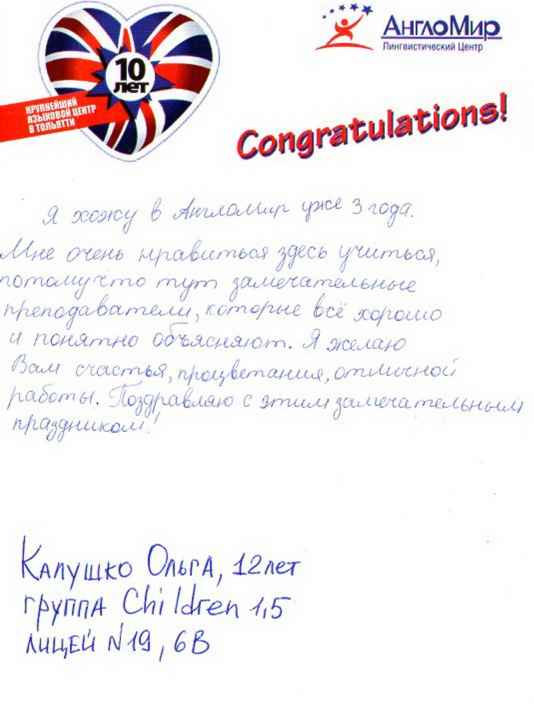 10
лет
КРУПНЕЙШИЙ
ЯЗЫКОВОЙ ЦЕНТР
В ТОЛЬЯТТИ
АнглоМир
Лингвистический Центр
Congratulations!
Я хожу в АнглоМир уже 3 года.
Мне очень нравиться здесь учиться,
потому что тут замечательные
преподаватели, которые всё хорошо
и понятно объясняют. Я желаю
Вам счастья, процветания, отличной
работы. Поздравляю с этим замечательным
праздником!
Капушко Ольга, 12 лет
группа Children 1,5
лицей №19, 6В